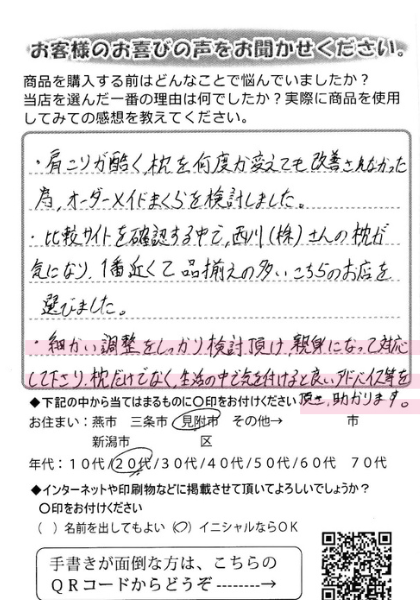 お客様のお喜びの声をお聞かせください。
商品を購入する前はどんなことで悩んでいましたか？
当店を選んだ一番の理由は何でしたか？実際に商品を使用
してみての感想を教えてください。
・肩こりが酷く、枕を何度か変えても改善されなかった
為、オーダーメイドまくらを検討しました。
・比較サイトを確認する中で、西川(株)さんの枕が
気になり、1番近くて品揃えの多いこちらのお店を
選びました。
・細かい調整をしっかり検討頂け、親身になって対応
して下さり、枕だけでなく、生活の中で気を付けると良いアドバイス等を
頂き、助かります。
◆下記の中から当てはまるものに○印をお付けください
お住まい：燕市 三条市 見附市 その他→ 市
新潟市 区
年代：１０代/２０代/３０代/４０代/５０代/６０代 ７０代
◆インターネットや印刷物などに掲載させて頂いてよろしいでしょうか？
○印をお付けください
( ) 名前を出してもよい (○) イニシャルならＯＫ
手書きが面倒な方は、こちらの
ＱＲコードからどうぞ--------→